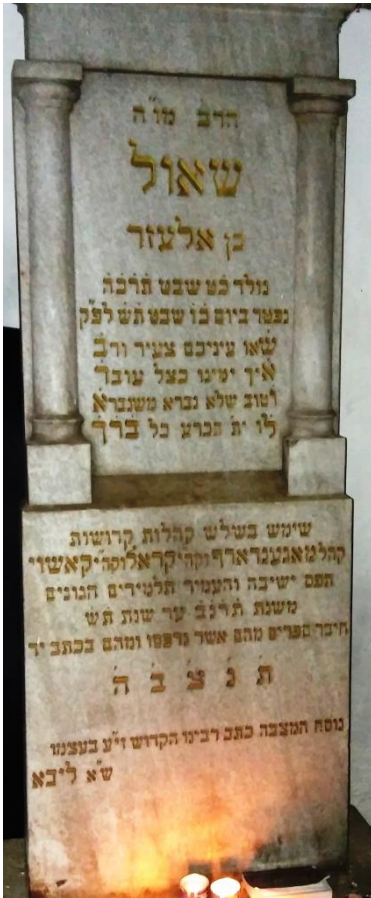 הרב מו"ה
שאול
בן אלעזר
נולד כט שבט תרכה
נפטר ביום כו שבט תש לפ"ק
שאו עיניכם צעיר ורב
איך ימינו כצל עובר
וטוב שלא נברא משנברא
לו ית תכרע כל ברך
שימש בשלש קהלות קדושות
קהל מאגענדארף וקה"י קראלי וקה"י קאשוי
תפס ישיבה והעמיד תלמידים הגונים
משנת תרנב עד שנת תש
חיבר ספרים מהם אשר נדפסו ומהם בכתב יד
ת נ צ ב ה
נוסח המצבה כתב רבינו הקדוש זי"ע בעצמו
ש"א ליבא